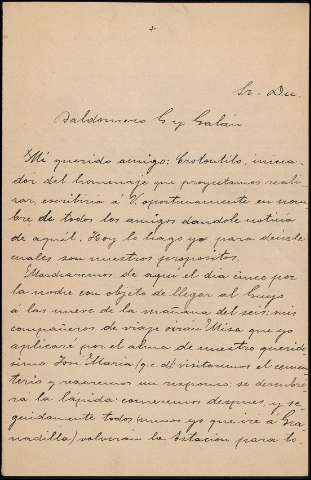 Sr. Dn.
Baldomero G. y Galán
Mi querido amigo: Crotontilo, inicia-
dor del homenaje que proyectamos reali-
zar, escribiria á V. oportunamente en nom-
bre de todos los amigos dandole noticia
de aquél. Hoy lo hago yo para decirle
cuales son nuestros propositos.
Madrugaremos de aquí el dia cinco por
la noche con objeto de llegar al Guijo
a las nueve de la mañana del seis; mis
compañeros de viaje oiran Misa que yo
aplicaré por el alma de nuestro queridi-
simo José Maria (q.e.d.) visitaremos el cemen-
terio y rezaremos un responso: se descubri-
rá la lápida: comeremos despues, y se-
guidamente todos (menos yo que iré a Gra-
nadilla) volverán la Estación para to-